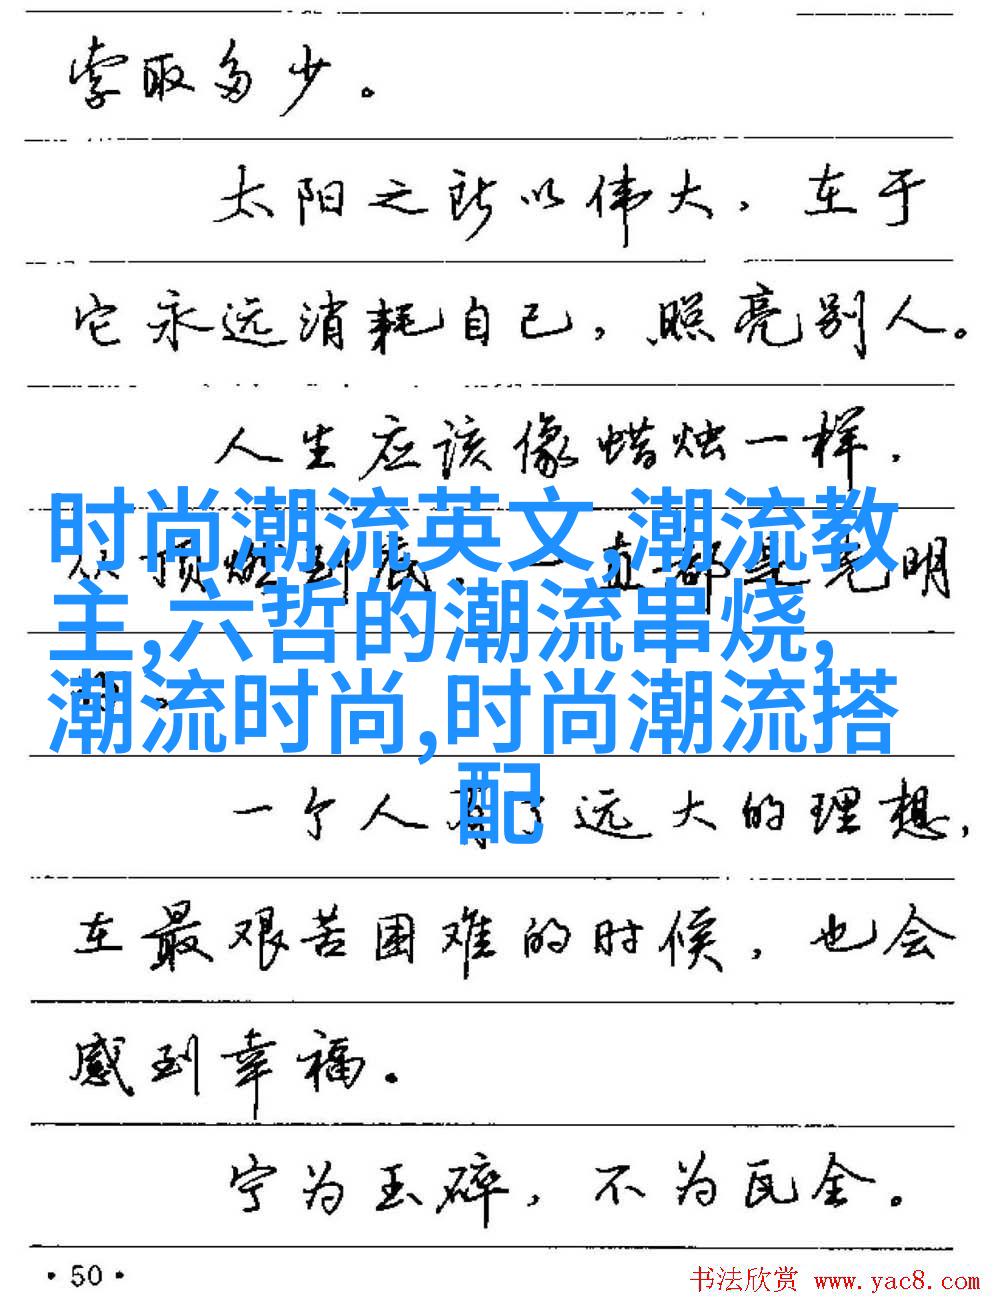 索取多少。
太阳之所以伟大，在于
它永远消耗自己，照亮别人。
人生应该像蜡烛一样，
从顶燃到底，一直都是光明
的。
时尚潮流英文,潮流教
主,六哲的潮流串烧,
潮流时尚,时尚潮流搭
配
一个人有了远大的理想，
在最艰苦困难的时候，也会
感到幸福。
宁为玉碎，不为瓦全。
·50·
书法欣赏 www.yac8.com